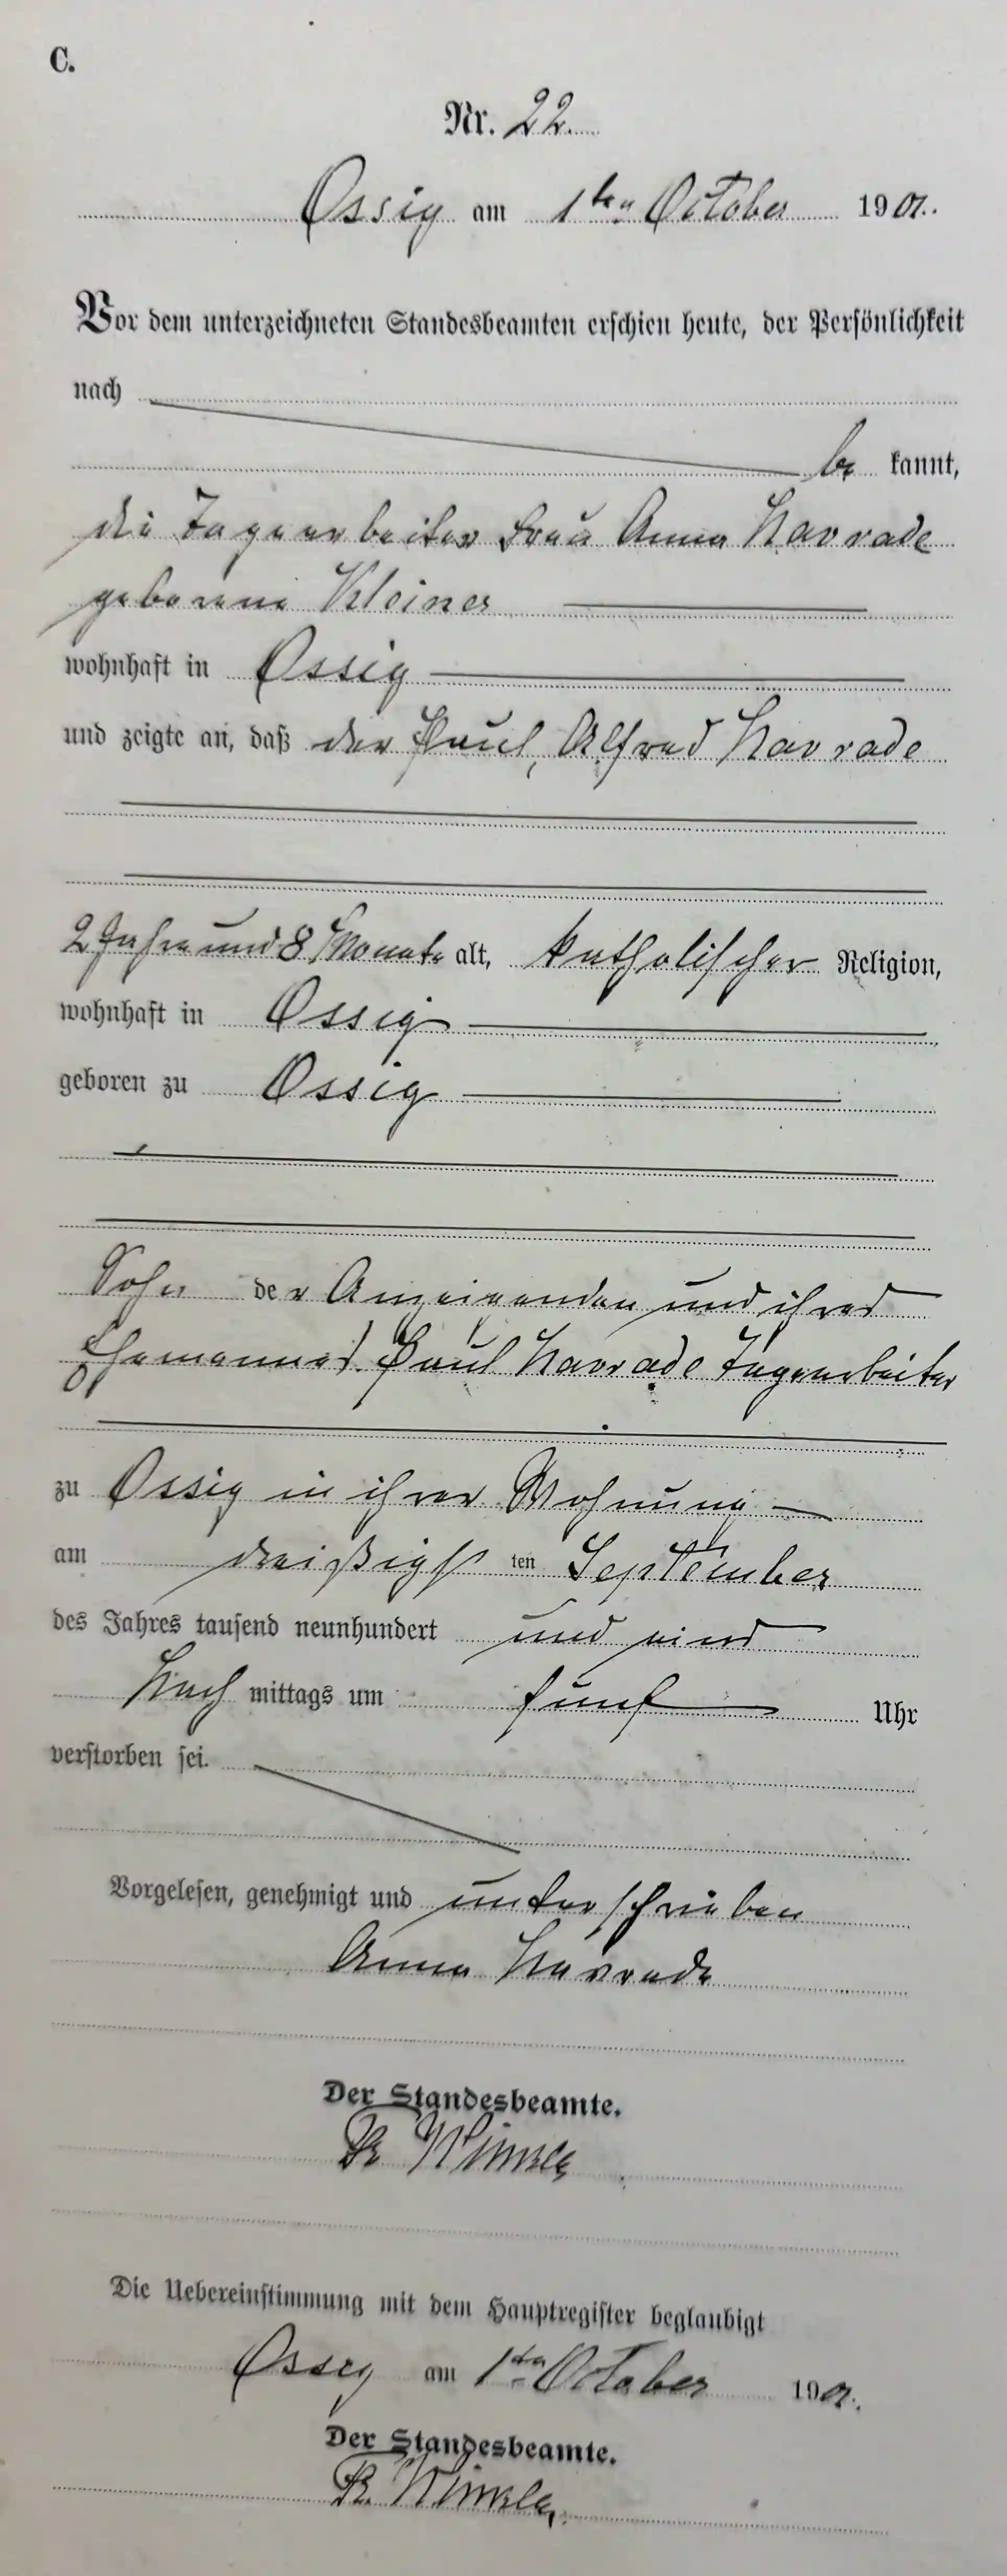 C.
Nr. 22.
Ossig am 1ten October 1901.
Vor dem unterzeichneten Standesbeamten erschien heute, der Persönlichkeit
nach
be kannt,
die Tagearbeiter Frau Anna Navrade
geborene Kleiner
wohnhaft in Ossig
und zeigte an, daß der Paul, Alfred Navrade
2 Jahre und 8 Monate alt, katholischer Religion,
wohnhaft in Ossig
geboren zu Ossig
Sohn der Anzeigenden und ihres
Ehemannes Paul Navrade Tagearbeiter
zu Ossig in ihrer Wohnung
am dreißigst ten September
des Jahres tausend neunhundert und eins
Nach mittags um fünf Uhr
verstorben sei.
Vorgelesen, genehmigt und unterschrieben
Anna Navrade
Der Standesbeamte.
Winkler
Die Uebereinstimmung mit dem Hauptregister beglaubigt
Ossig am 1ten October 1901.
Der Standesbeamte.
Winkler